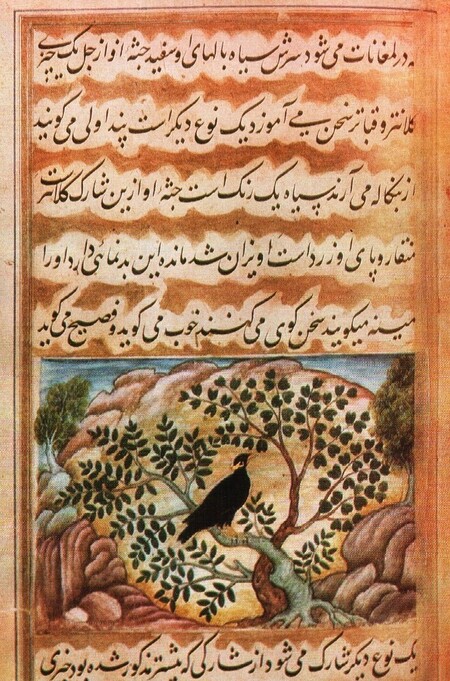 در لمغانات می شود سرش سیاه بالهای او سفید جثه او از جل یک چیزی
کلانتر و قباتر سخن نمی آموزد یک نوع دیگر است پنداولی می گویند
از بنگاله می آرند سیاه یک رنگ است جثه او ازین شارک کلانتر است
منقار و پای او زرد است ویزان شده مانده این بدنمائی دارد او را
مینه میگویند سخن گوی می کنند خوب می گوید و فصیح می گوید
یک نوع دیگر شارک می شود از شارکی که پیشتر مذکور شده بود چیزی